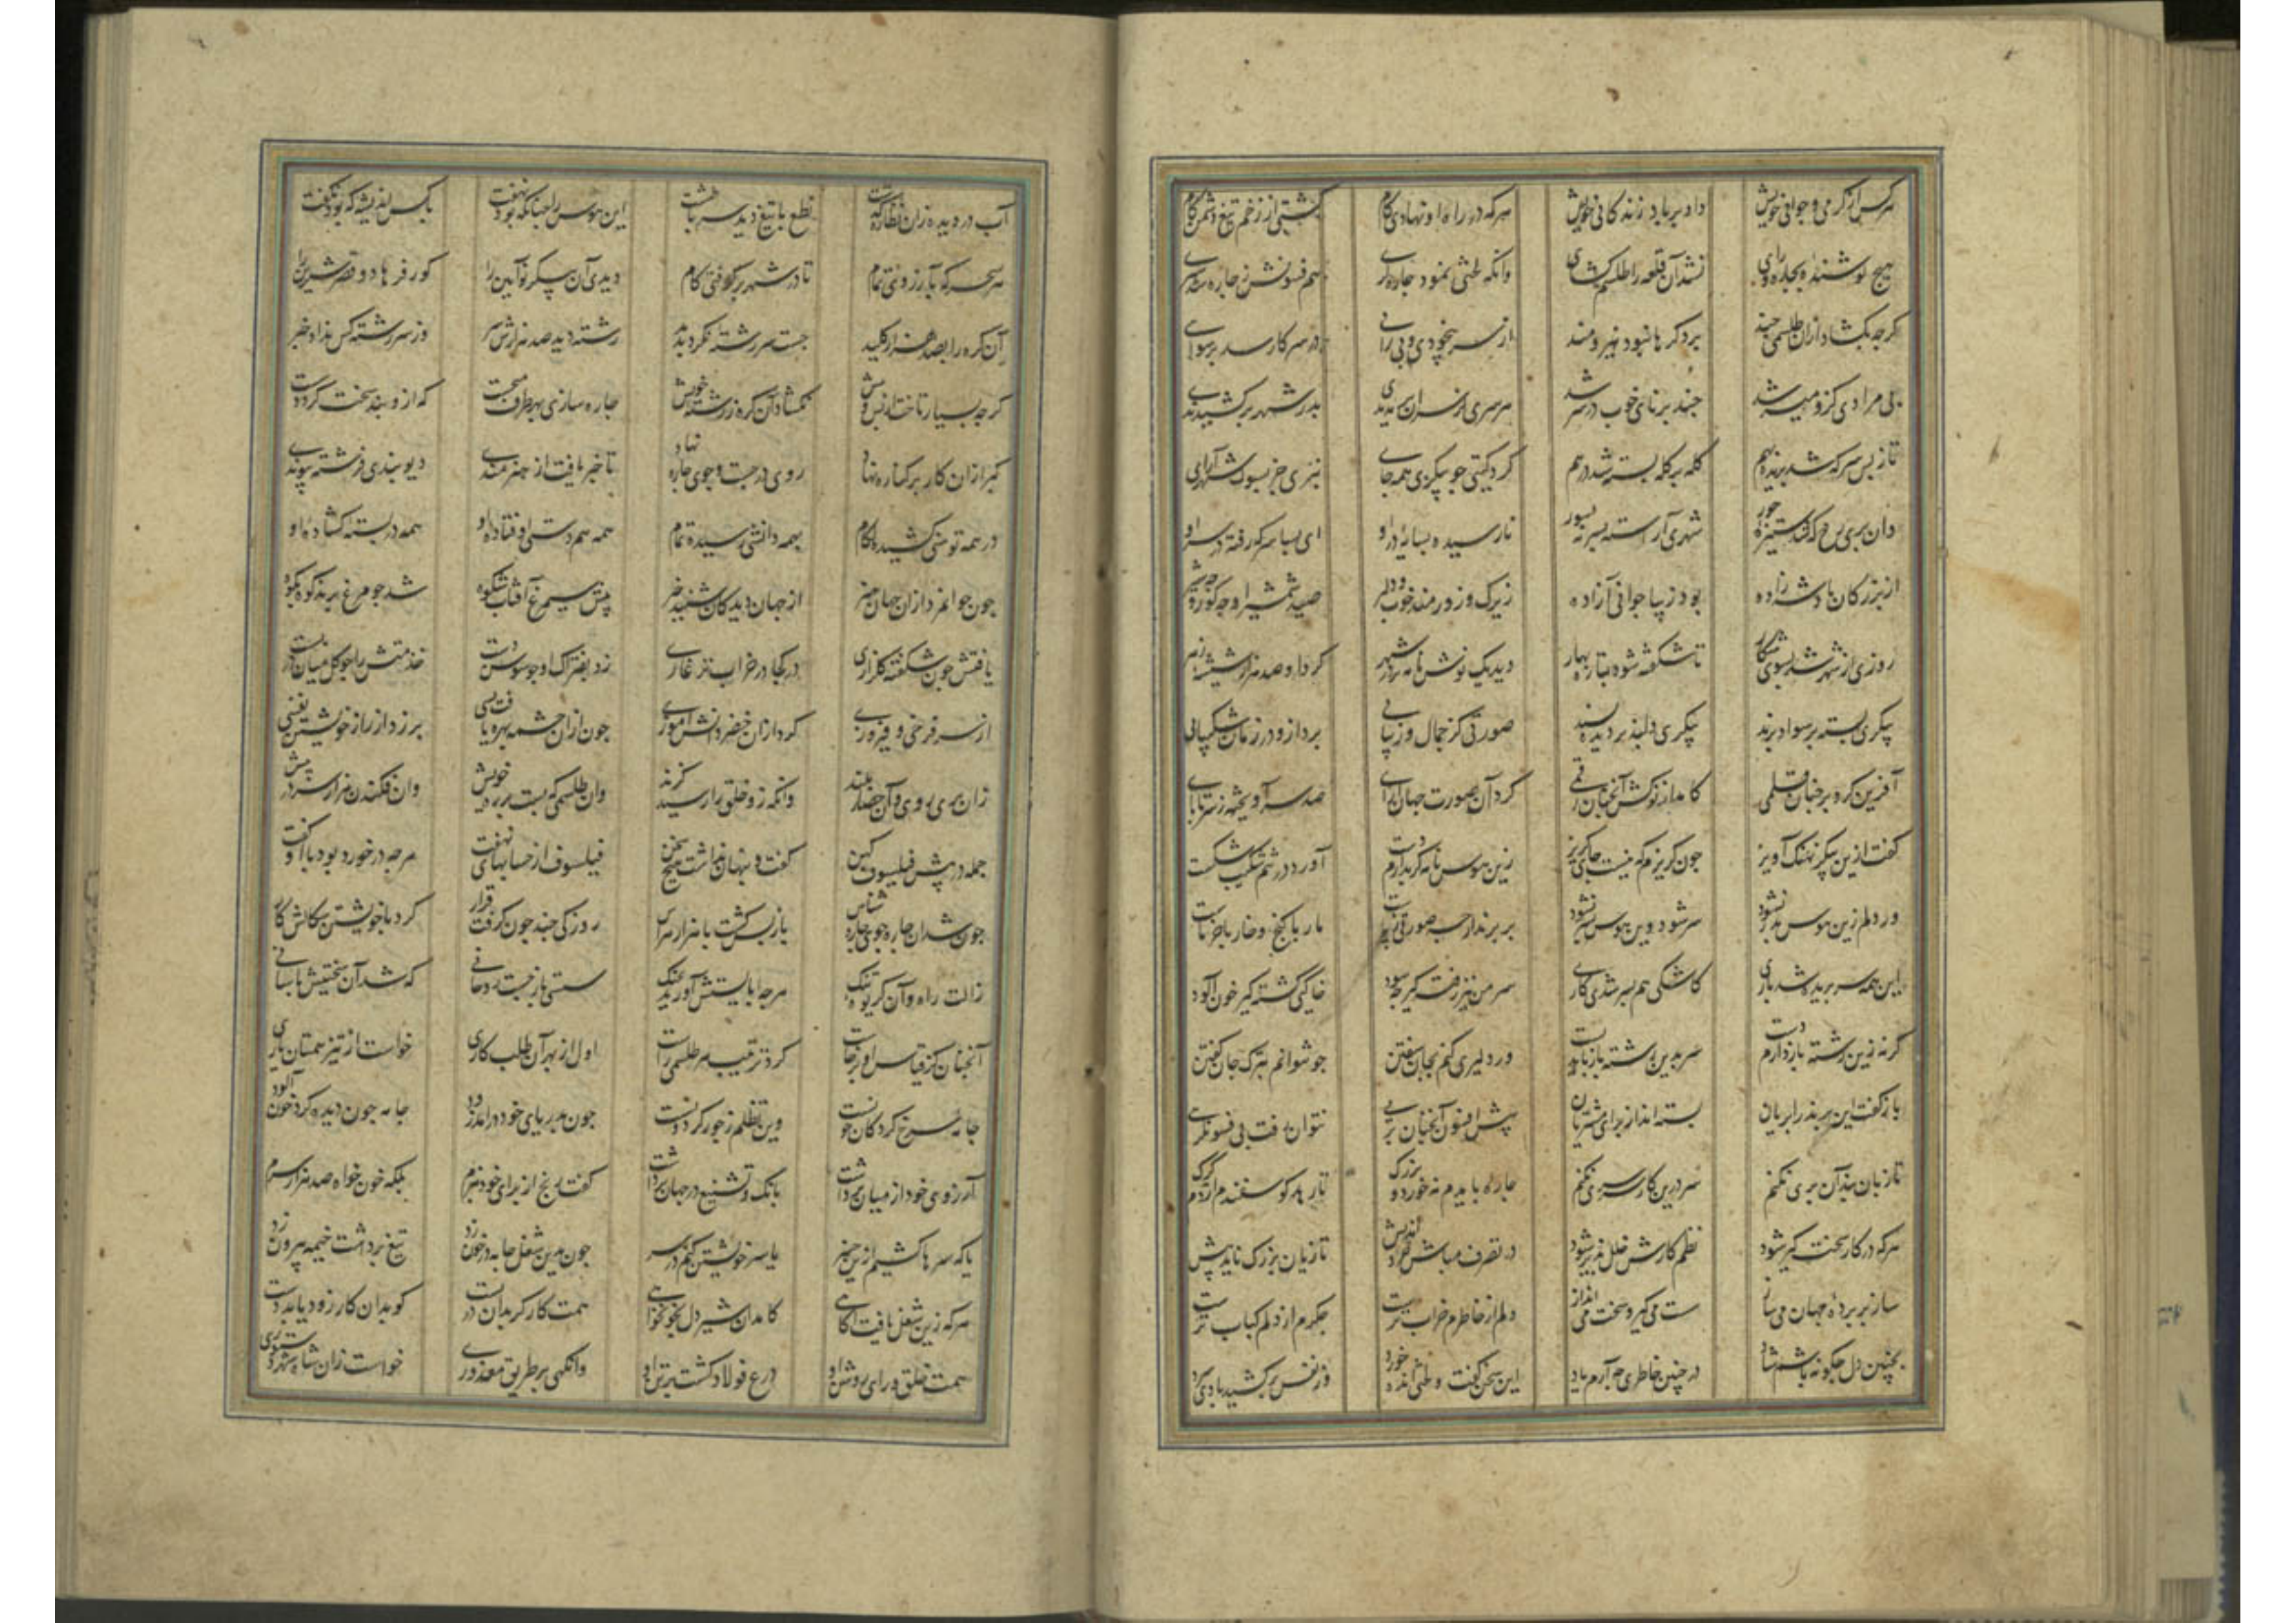 هرکس از گرمی و جوانی خویش داد بر باد زندکانی خویش هرکه در راه او نهادی کام کشتی از زخم تیغ دشمن کام
هیچ کوشنده بچاره و رای نشد آن قلعه را طلسم کشای وانکه لختی نمود چاره کری هم فسونش ز چاره شد سپری
کرچه بکشاد ازان طلسمی چند بر دکرها نبود نیرومند از سر بیخودی و بی رایی در سر کار شد برسوایی
بی مرادی کزو میسر شد چند برنای خوب در سر شد هر سری کز سران بریدندی بدر شهر بر کشیدندی
تا ز بس سر که شد بریده بهم کله بر کله بسته شد در هم کرد کیتی چو بنکری همه جای نبری جز بسور شهر آرای
وان پری رخ که شد ستیزه حور شهری آراسته بسر نه بسور نارسیده بسایه در او ای بسا سر که رفته در سر او
از بزرکان پادشه زاده بود زیبا جوانی آزاده زیرک و زورمند و خوب و دلیر صید شمشیر او چه کور و چه شیر
روزی از شهر شد بسوی شکار تا شکفته شود چو تازه بهار دید یک نوش نامه بر در شهر کرد او صد هزار شیشه زهر
پیکری بسته بر سواد پرند پیکری دلپذیر دیده پسند صورتی کز جمال و زیبایی برد ازو در زمان شکیبایی
آفرین کرد بر چنان قلمی کاید از نوکش آنچنان رقمی کرد آن صورت جهان آرای صد سر آویخته ز سر تا پای
کفت ازین پیکر نهنک آویز چون کریزم که نیست جای کریز زین هوس نامه کر بدارم دست آورد در تنم شکیب شکست
ور دلم زین هوس بدر نشود سر شود وین هوس ز سر نشود بر پرند ارچه صورتی زیباست مار با کنج و خار با خرماست
این همه سر بریده شد باری کاشکی هم بسر شدی کاری سر من نیز رفته کیر چه سود خاکیی کشته کیر خون آلود
کر نه زین رشته باز دارم دست سر بدین رشته باز باید بست ور دلیری کنم بجان سفتن چو توانم بترک جان کفتن
باز کفت این پرند را پریان بسته اند از برای مشتریان پیش افسون آنچنان پریی نتوان رفت بی فسونکریی
تا زبان بند آن پری نکنم سر درین کار سرسری نکنم چاره باید نه خورد و بزرک تا رهد کوسفندم از دم کرک
هرکه در کار سخت کیر شود نظم کارش خلل پذیر شود در تصرف مباش خرد اندیش تا زیان بزرک ناید پیش
ساز بر پرده جهان می ساز سست می کیر و سخت می انداز دلم از خاطرم خراب ترست جکرم از دلم کباب ترست
بچنین دل چکونه باشم شاد در چنین خاطری چه آرم یاد این سخن کفت و لختی انده خورد وز نفس بر کشید بادی سرد
آب در دیده زان نظاره کذشت نطع با تیغ دید سر با طشت این هوس را چنانکه بود نهفت با کس اندیشه که بود نکفت
هر سحرکه بآرزوی تمام تا در شهر برکرفتی کام دیدی آن پیکر نوآیین را کور فرهاد و قصر شیرین را
آن کره را بصد هزار کلید جست سررشته نکردید رشته دید صد هزارش سر وز سررشته کس نداد خبر
کرچه بسیار تاخت از پس و پیش نکشاد آن کره ز رشته خویش چاره سازی بهر طرف میجست که ازو بند سخت کردد سست
کبر ازان کار بر کناره نهاد روی در جست و جوی چاره نهاد تا خبر یافت از هنرمندی دیوبندی فرشته پیوندی
در همه توسنی کشیده لکام بهمه دانشی رسیده تمام همه هم دستی اوفتاده او همه در بسته کشاده او
چون جوانمرد ازان جهان هنر از جهان دیدکان شنید خبر پیش سیمرغ آفتاب شکوه شد چو مرغ پرنده کوه بکوه
یافتش چون شکفته کلزاری در کجا در خراب تر غاری زد بفتراک او چو سوسن دست خدمتش را چو کل میان در بست
از سر فرخی و فیروزی کرد ازان خضر دانش آموزی چون ازان چشمه بهره یافت بسی بر زد از راز خویشتن نفسی
زان پری روی و آن حصار بلند وانکه زو خلق را رسید کزند وان طلسمی که بست بر ره خویش وان فکندن هزار سر در پیش
جمله در پیش فیلسوف کهن کفت و پنهان نداشت هیچ سخن فیلسوف از حسابهای نهفت هرچه در خورد بود با او کفت
چون شد آن چاره جوی چاره شناس باز پس کشت با هزار سپاس روزکی چند چون کرفت قرار کرد با خویشتن سکالش کار
ز آلت راه و آن کریوه تنک هرچه بایستش آورید بچنک نسبتی باز جست روحانی که شد آن سختیش بآسانی
آنچنان کز قیاس او برخاست کرد ترتیب هر طلسمی راست اول از بهر آن طلب کاری خواست از تیز همتان یاری
جامه سرخ کرد کان خونست وین تظلم ز جور کردونست چون بدریای خود درآمد زود جامه چون دیده کرد خون آلود
آرزوی خود از میان برداشت بانک و تشنیع در جهان برداشت کفت رنج از برای خود نبرم بلکه خون خواه صد هزار سرم
یا که سرها کشیم ازین چنبر یا سر خویشتن کنم در سر چون بدین شغل جامه در خون زد تیغ برداشت خیمه بیرون زد
هرکه زین شغل یافت آکاهی کامد آن شیردل بخونخواهی همت کارکر بدان در بست کو بدان کار زود یابد دست
همت خلق و رای روشن او درع فولاد کشت بر تن او وانکهی بر طریق معذوری خواست زان شاه شهر دستوری